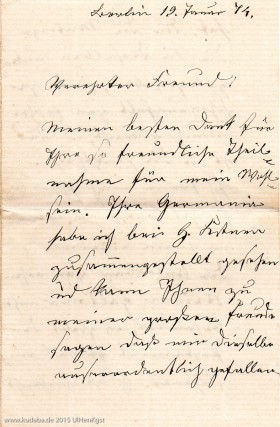 Berlin 19. Januar 74.
Verehrter Freund!
Meinen besten Dank für
Ihre so freundliche Theil-
nahme für mein Wohl
sein. Ihre Germania
habe ich bei G.
zusammengestellt gesehen
und kann Ihnen zu
meiner großen Freude
sagen daß mir dieselbe
außerordentlich gefallen
www.kudaba.de 2015 UlHenKgst